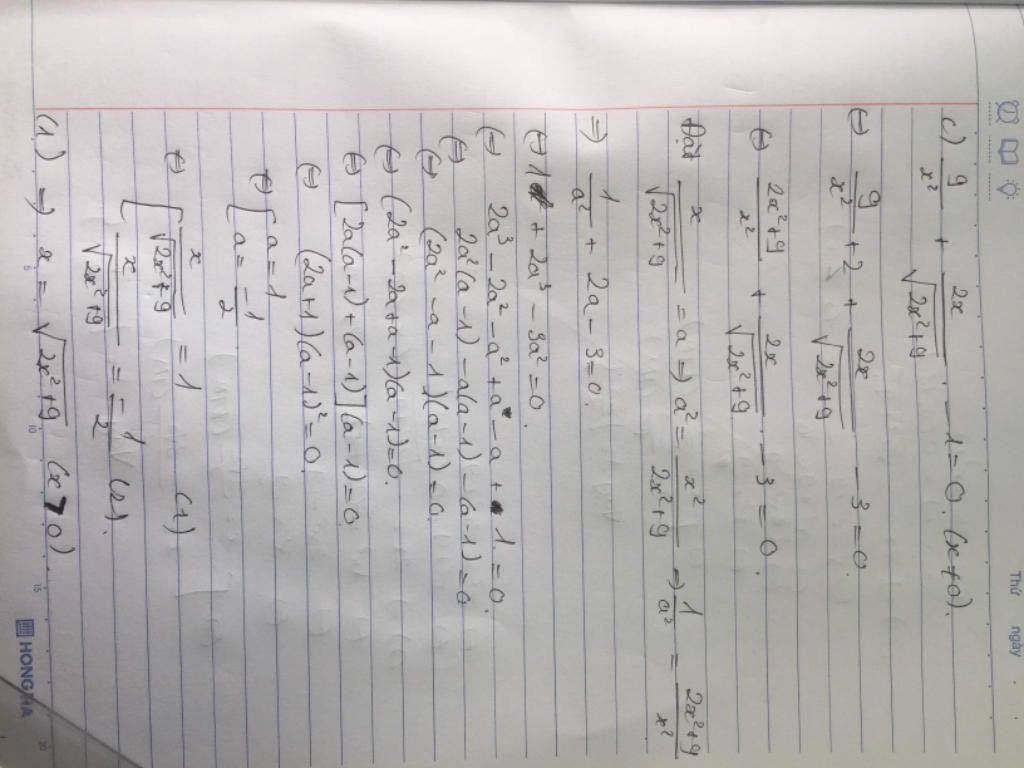 Thứ ngày
c) 9/x² + 2x/√(2x²+9) - 1 = 0. (x≠0).
(=) 9/x² + 2 + 2x/√(2x²+9) - 3 = 0.
(=) 2x²+9/x² + 2x/√(2x²+9) - 3 = 0.
Đặt x/√(2x²+9) = a => a² = x²/2x²+9 => 1/a² = 2x²+9/x²
=> 1/a² + 2a - 3 = 0.
(=) 1 + 2a³ - 3a² = 0.
(=) 2a³ - 2a² - a² + a - a + 1 = 0.
(=) 2a²(a-1) - a(a-1) - (a-1) = 0
(=) (2a² - a - 1)(a-1) = 0.
(=) (2a² - 2a + a - 1)(a-1) = 0.
(=) [2a(a-1) + (a-1)](a-1) = 0
(=) (2a+1)(a-1)² = 0.
(=) [ a = 1
a = -1/2
(=) [ x/√(2x²+9) = 1 (1)
x/√(2x²+9) = -1/2 (2).
(1) => x = √(2x²+9) (x > 0)
5 10 15 20
HONG HA